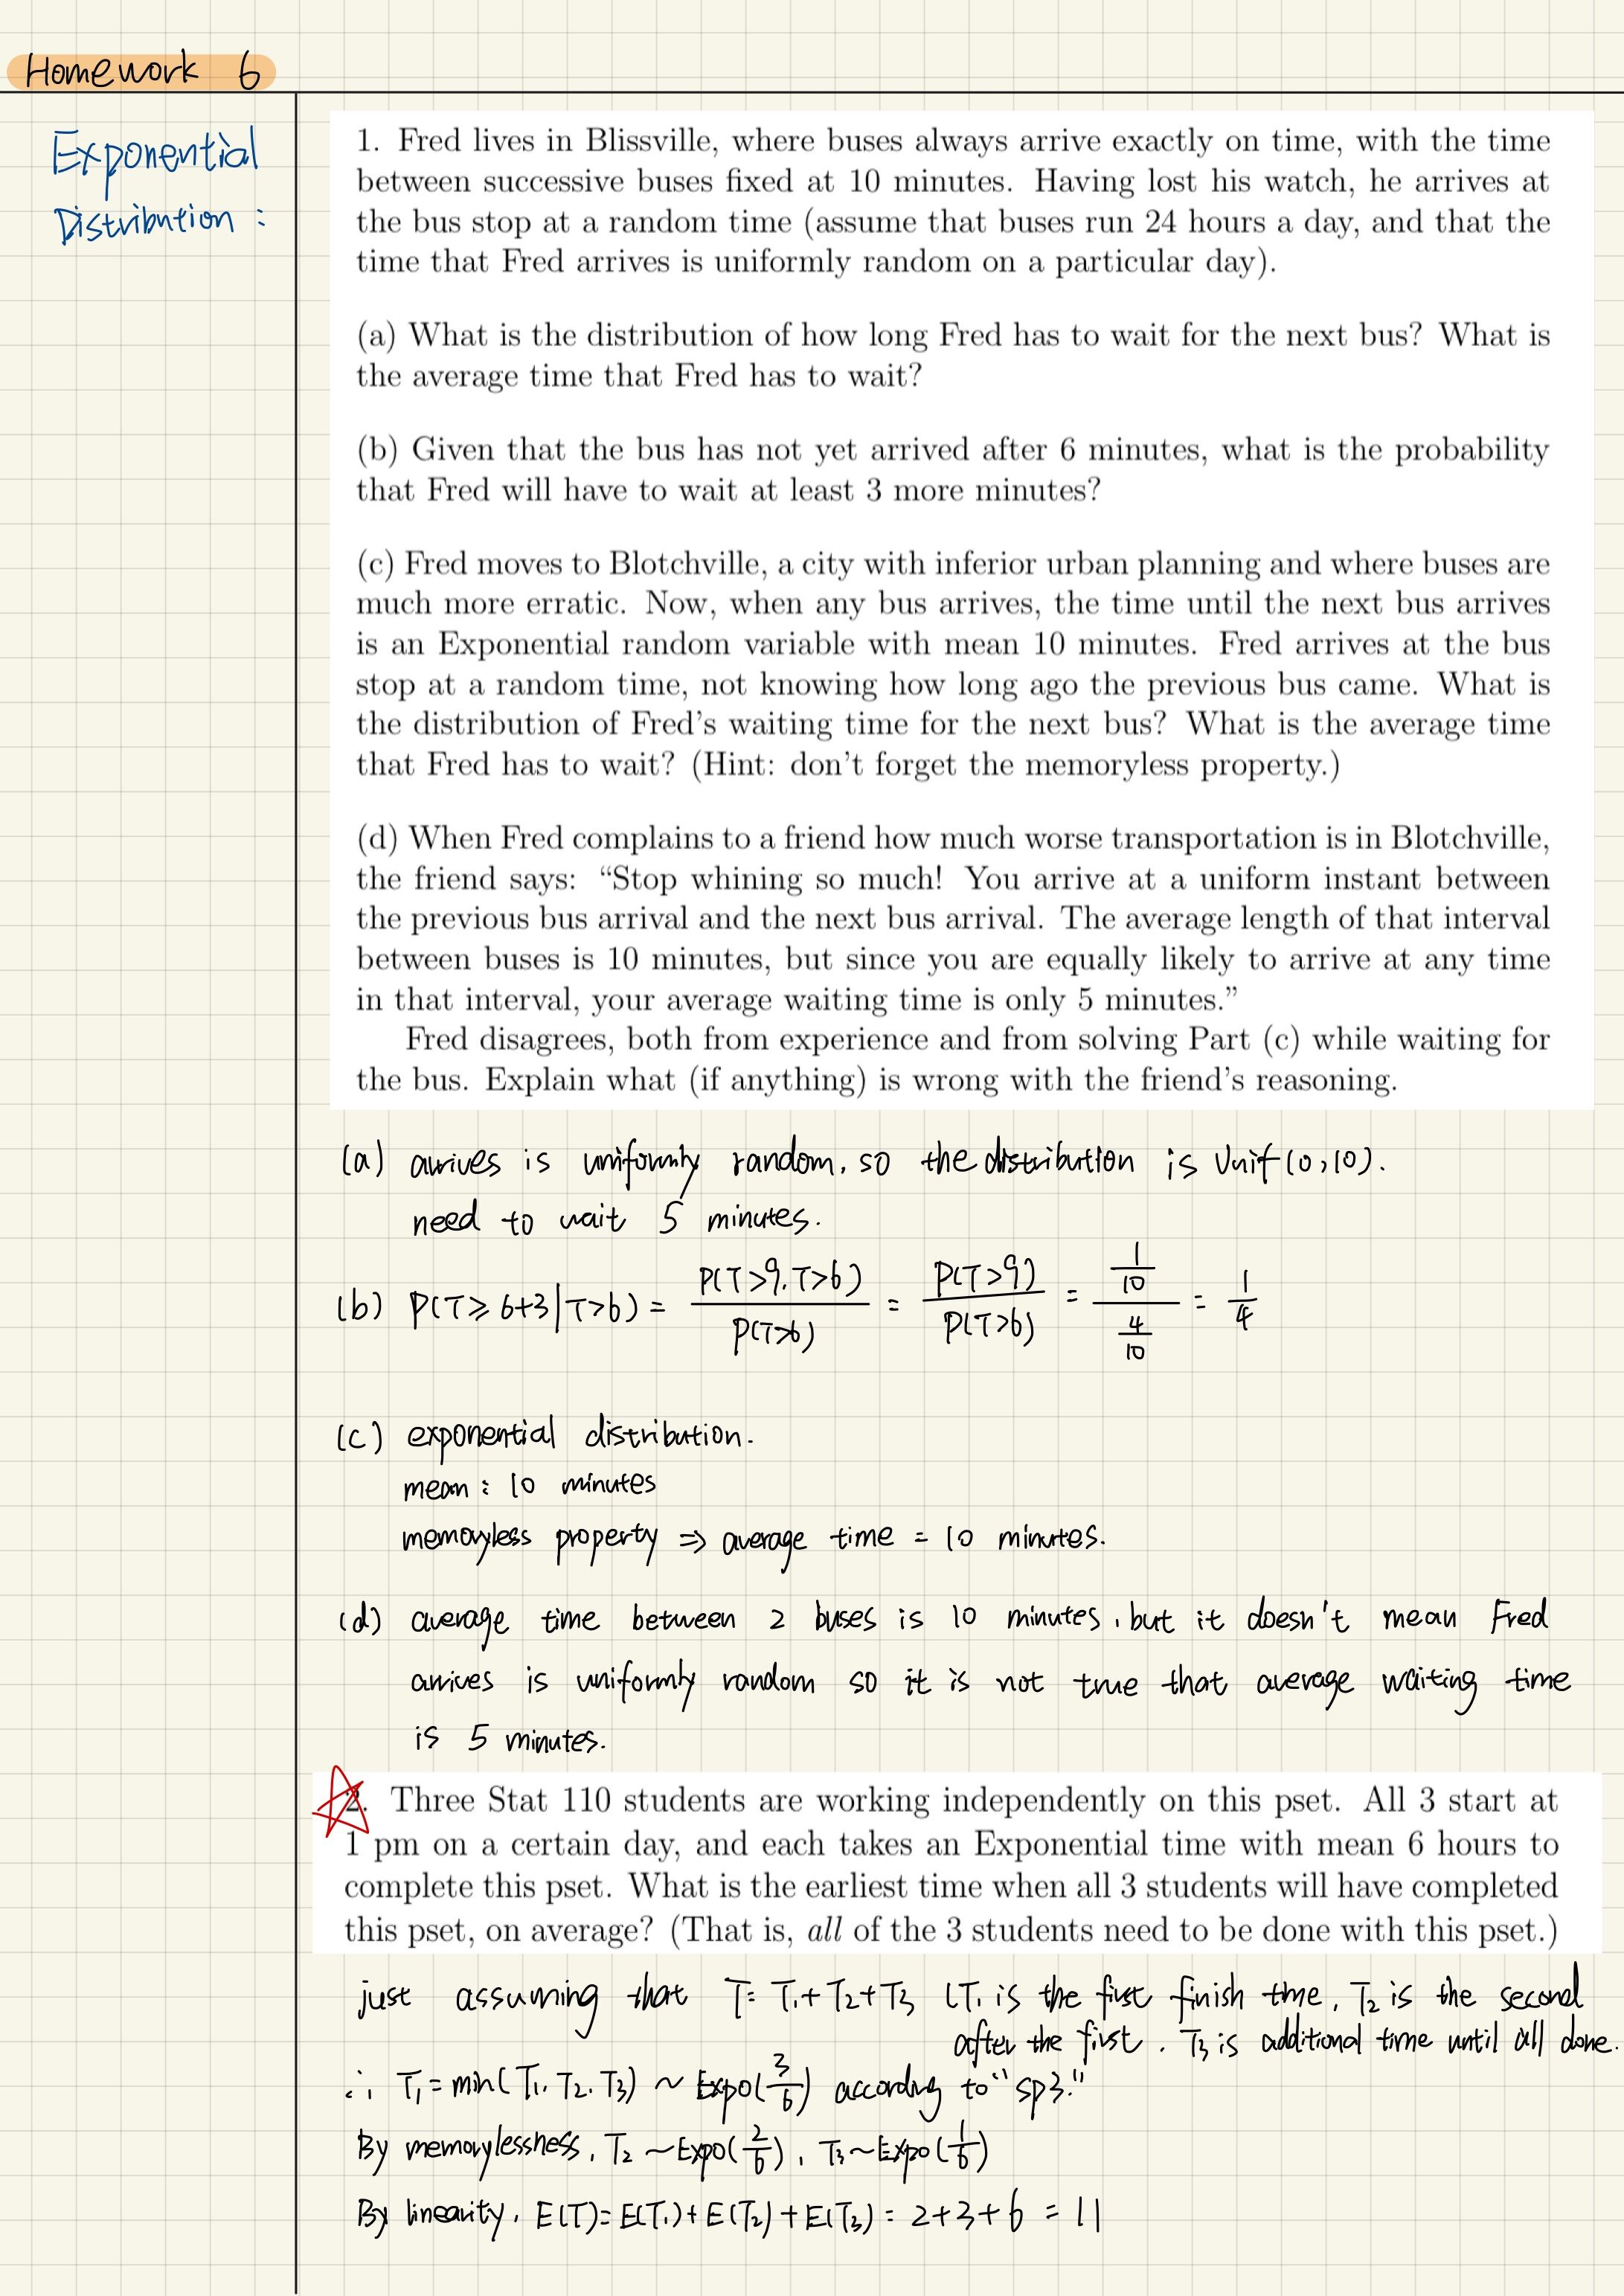 Homework 6
Exponential
Distribution :
1. Fred lives in Blissville, where buses always arrive exactly on time, with the time
between successive buses fixed at 10 minutes. Having lost his watch, he arrives at
the bus stop at a random time (assume that buses run 24 hours a day, and that the
time that Fred arrives is uniformly random on a particular day).
(a) What is the distribution of how long Fred has to wait for the next bus? What is
the average time that Fred has to wait?
(b) Given that the bus has not yet arrived after 6 minutes, what is the probability
that Fred will have to wait at least 3 more minutes?
(c) Fred moves to Blotchville, a city with inferior urban planning and where buses are
much more erratic. Now, when any bus arrives, the time until the next bus arrives
is an Exponential random variable with mean 10 minutes. Fred arrives at the bus
stop at a random time, not knowing how long ago the previous bus came. What is
the distribution of Fred's waiting time for the next bus? What is the average time
that Fred has to wait? (Hint: don't forget the memoryless property.)
(d) When Fred complains to a friend how much worse transportation is in Blotchville,
the friend says: “Stop whining so much! You arrive at a uniform instant between
the previous bus arrival and the next bus arrival. The average length of that interval
between buses is 10 minutes, but since you are equally likely to arrive at any time
in that interval, your average waiting time is only 5 minutes.”
Fred disagrees, both from experience and from solving Part (c) while waiting for
the bus. Explain what (if anything) is wrong with the friend's reasoning.
(a) arrives is uniformly random, so the distribution is Unif(0,10).
need to wait 5 minutes.
(b) P(T ≥ 6+3 | T>6) = P(T>9, T>6) / P(T>6) = P(T>9) / P(T>6) = (1/10) / (4/10) = 1/4
(c) exponential distribution.
mean : 10 minutes
memoryless property ⇒ average time = 10 minutes.
(d) average time between 2 buses is 10 minutes, but it doesn't mean Fred
arrives is uniformly random so it is not true that average waiting time
is 5 minutes.
2. Three Stat 110 students are working independently on this pset. All 3 start at
1 pm on a certain day, and each takes an Exponential time with mean 6 hours to
complete this pset. What is the earliest time when all 3 students will have completed
this pset, on average? (That is, all of the 3 students need to be done with this pset.)
just assuming that T = T₁+T₂+T₃ (T₁ is the first finish time, T₂ is the second
after the first. T₃ is additional time until all done.
∴ T₁ = min(T₁, T₂, T₃) ~ Expo(3/6) according to "sp3."
By memorylessness, T₂ ~ Expo(2/6), T₃ ~ Expo(1/6)
By linearity, E(T) = E(T₁) + E(T₂) + E(T₃) = 2+3+6 = 11